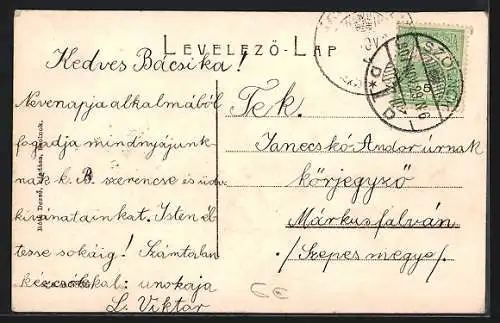 LEVELEZŐ-LAP
Kedves Bácsika!
Nevenapja alkalmából
fogadja mindnyájunk-
nak k. B. szerencse és üdv
kivánatainkat. Isten él-
tesse sokáig! Számtalan
kézcsókkal: unokaja
L. Viktor
Tek.
Janecskó Andor úrnak
körjegyző
Márkusfalván
/Szepes megye/.